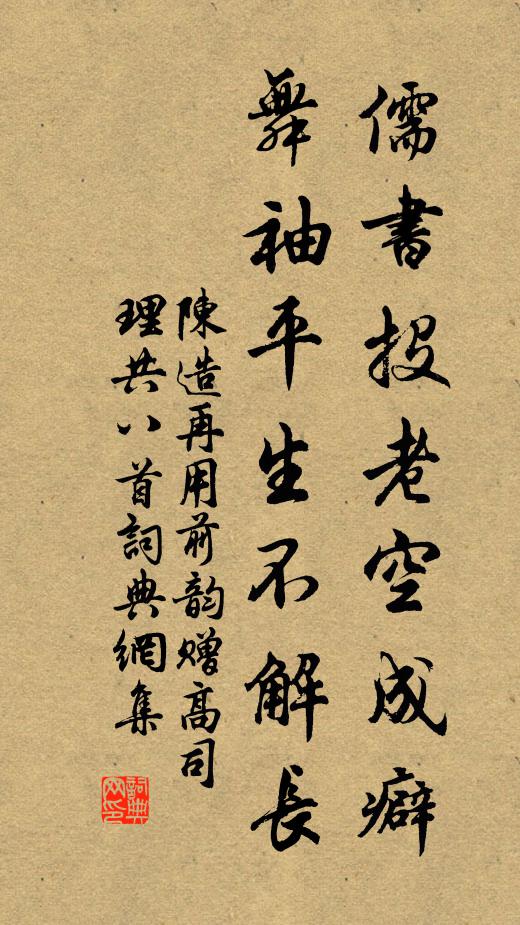 儒書投老空成癖
舞袖平生不解長
陳造再用前韵贈高司
理共八首詞典網集
詞典网印